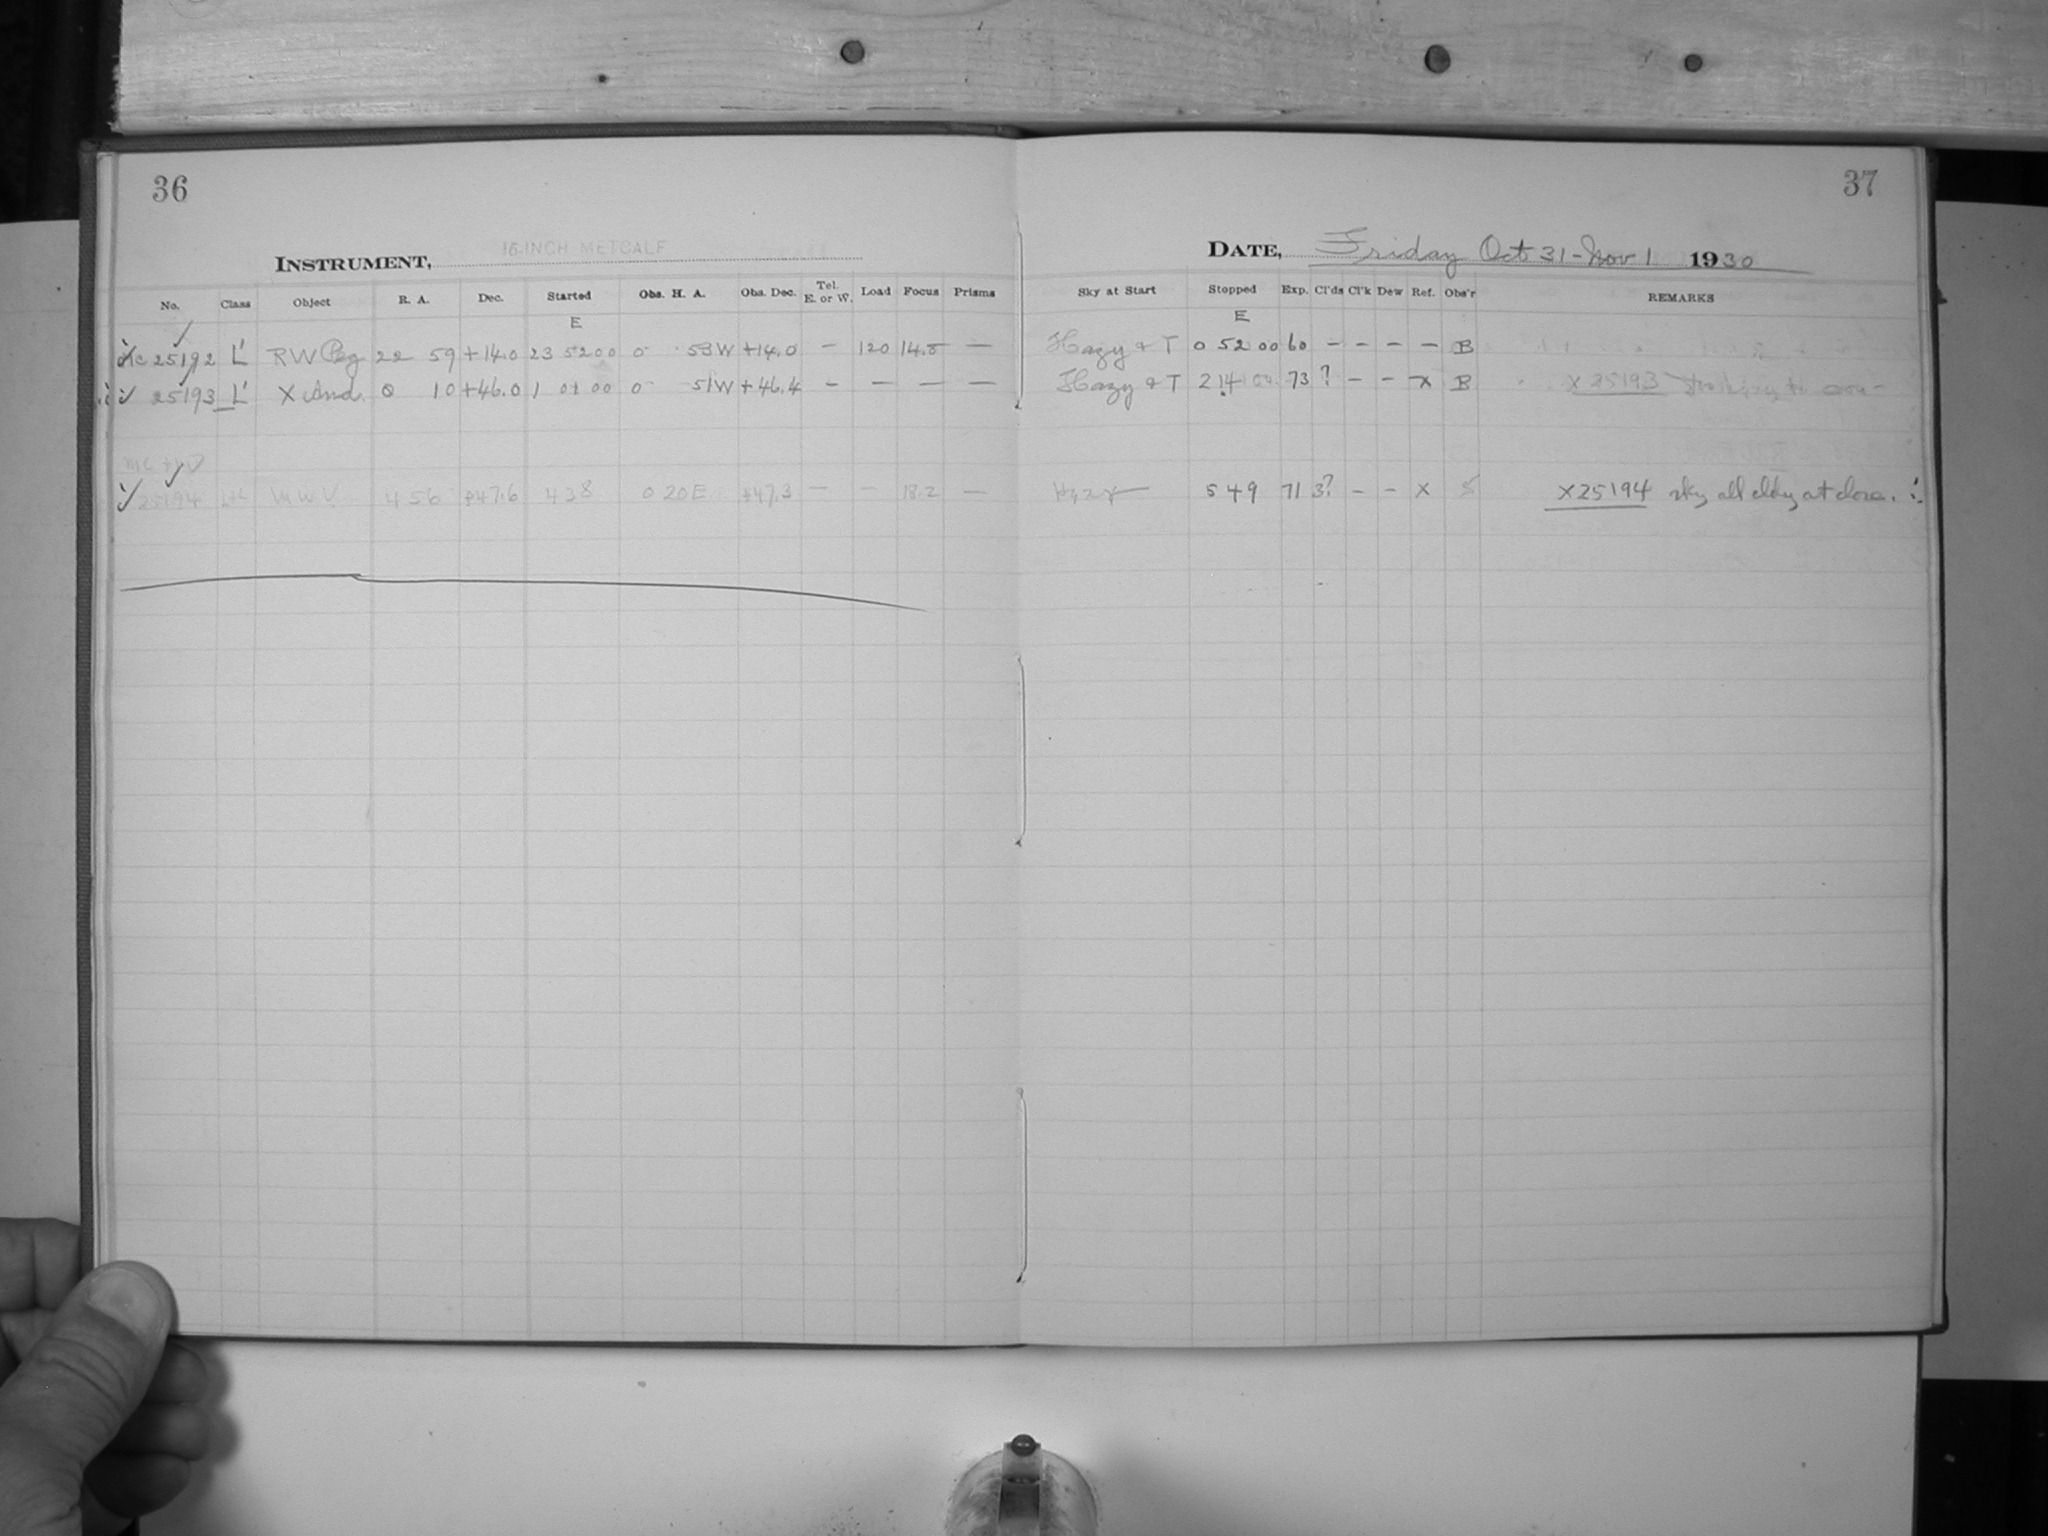 36
INSTRUMENT, 16-INCH METCALF
No. Class Object R. A. Dec. Started Obs. H. A. Obs. Dec. Tel. E. or W. Load Focus Prisms
E
MC 25192 L' RW Peg 22 59 +14.0 23 52 00 0 53W +14.0 – 120 14.5 –
25193 L' X And. 0 10 +46.0 1 01 00 0 51W +46.4 – – – –
MC
25194 4 56 +47.6 4 38 0 20E +47.3 – – 18.2 –
37
DATE, Friday Oct 31 - Nov 1 1930
Sky at Start Stopped Exp. Cl'ds Cl'k Dew Ref. Obs'r REMARKS
E
Hazy + T 0 52 00 60 – – – – B
Hazy + T 2 14 73 ? – – x B X 25193
Hazy 5 49 71 3? – – x S X25194 sky all cldy at close.